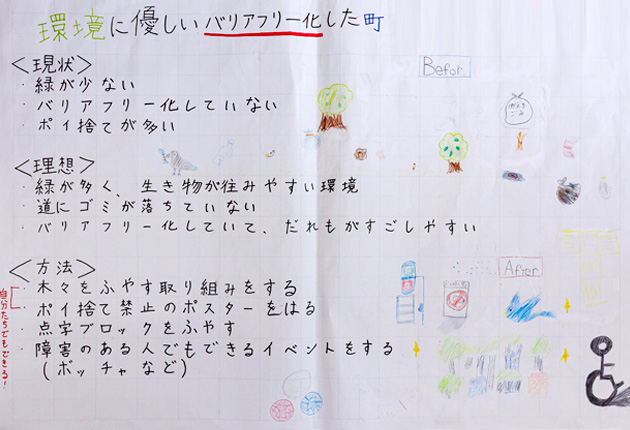 環境に優しいバリアフリー化した町
<現状>
・緑が少ない
・バリアフリー化していない
・ポイ捨てが多い
Befor
<理想>
・緑が多く、生き物が住みやすい環境
・道にゴミが落ちていない
・バリアフリー化していて、だれもがすごしやすい
<方法>
・木々をふやす取り組みをする
・ポイ捨て禁止のポスターをはる
・点字ブロックをふやす
・障害のある人でもできるイベントをする
(ボッチャなど)
自分たちでもできる!
After